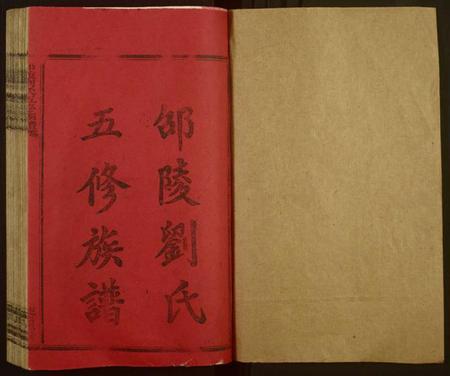 邵陵劉氏
五修族譜